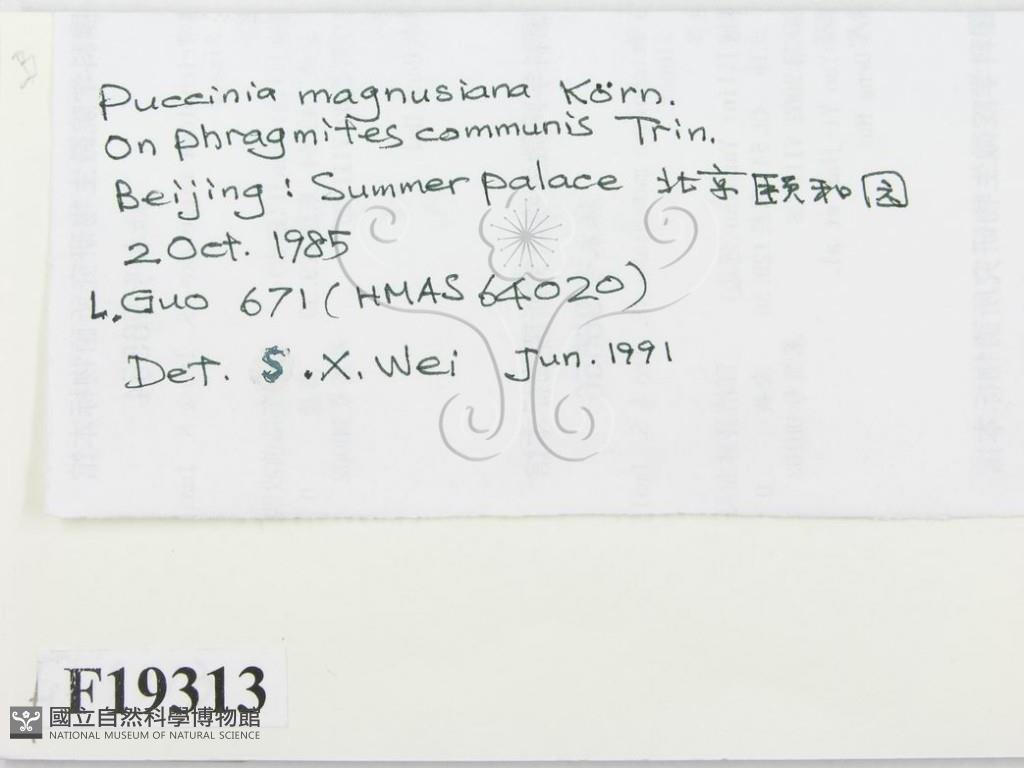 Puccinia magnusiana Körn.
On Phragmites communis Trin.
Beijing: Summer palace 北京颐和园
2 Oct. 1985
L. Guo 671 (HMAS 64020)
Det. S.X. Wei Jun. 1991
F19313
國立自然科學博物館
NATIONAL MUSEUM OF NATURAL SCIENCE